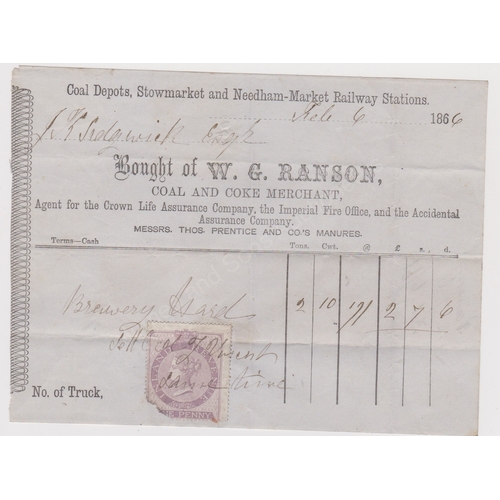 Coal Depots, Stowmarket and Needham-Market Railway Stations.
Feb 6 1866
Sedgwick Esqr
Bought of W. G. RANSON,
COAL AND COKE MERCHANT,
Agent for the Crown Life Assurance Company, the Imperial Fire Office, and the Accidental
Assurance Company.
MESSRS. THOS. PRENTICE AND CO.'S MANURES.
Terms—Cash Tons. Cwt. @ £ s. d.
Brewery Hard 2 10 19/ 2 7 6
same time
PENNY
No. of Truck,